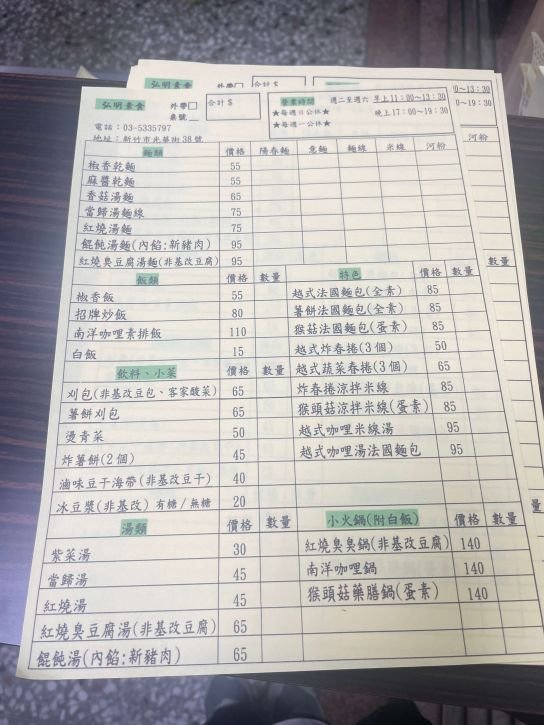 弘明素食
外帶□
合計$
0~13:30
0~19:30
河粉
數量
弘明素食 外帶□ 合計$
桌號
營業時間 週二至週六 早上11:00~13:30
★每週日公休★ 晚上17:00~19:30
★每週一公休★
電話:03-5335797
地址:新竹市光華街38號
麵類 價格 陽春麵 意麵 麵線 米線 河粉
椒香乾麵 55
麻醬乾麵 55
香菇湯麵 65
當歸湯麵線 75
紅燒湯麵 75
餛飩湯麵(內餡:新豬肉) 95
紅燒臭豆腐湯麵(非基改豆腐) 95
飯類 價格 數量
椒香飯 55
招牌炒飯 80
南洋咖哩素排飯 110
白飯 15
飲料、小菜 價格 數量
刈包(非基改豆包、客家酸菜) 65
薯餅刈包 65
燙青菜 50
炸薯餅(2個) 45
滷味豆干海帶(非基改豆干) 40
冰豆漿(非基改) 有糖/無糖 20
特色 價格 數量
越式法國麵包(全素) 85
薯餅法國麵包(全素) 85
猴菇法國麵包(蛋素) 85
越式炸春捲(3個) 50
越式蔬菜春捲(3個) 65
炸春捲涼拌米線 85
猴頭菇涼拌米線(蛋素) 85
越式咖哩米線湯 95
越式咖哩湯法國麵包 95
湯類 價格 數量
紫菜湯 30
當歸湯 45
紅燒湯 45
紅燒臭豆腐湯(非基改豆腐) 65
餛飩湯(內餡:新豬肉) 65
小火鍋(附白飯) 價格 數量
紅燒臭臭鍋(非基改豆腐) 140
南洋咖哩鍋 140
猴頭菇藥膳鍋(蛋素) 140